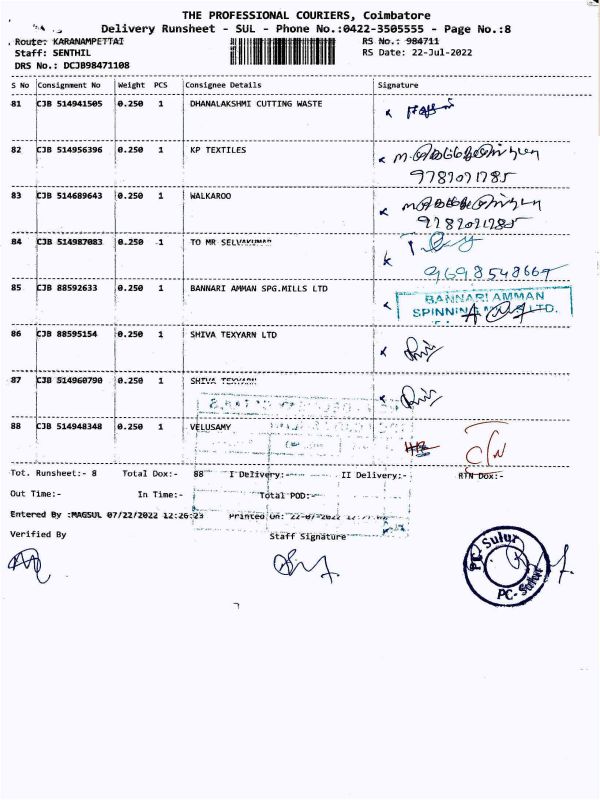 THE PROFESSIONAL COURIERS, Coimbatore
Delivery Runsheet - SUL - Phone No.:0422-3505555 - Page No.:8
Route: KARANAMPETTAI RS No.: 984711
Staff: SENTHIL RS Date: 22-Jul-2022
DRS No.: DCJB98471108
S No Consignment No Weight PCS Consignee Details Signature
81 CJB 514941505 0.250 1 DHANALAKSHMI CUTTING WASTE
82 CJB 514956396 0.250 1 KP TEXTILES
9787071785
83 CJB 514689643 0.250 1 WALKAROO
84 CJB 514987083 0.250 1 TO MR SELVAKUMAR
9698548667
85 CJB 88592633 0.250 1 BANNARI AMMAN SPG.MILLS LTD
BANNARI AMMAN
SPINNING MILLS LTD.
86 CJB 88595154 0.250 1 SHIVA TEXYARN LTD
87 CJB 514960790 0.250 1 SHIVA TEXYARN
88 CJB 514948348 0.250 1 VELUSAMY
C/N
Tot. Runsheet:- 8 Total Dox:- 88 I Delivery:- II Delivery:- RTN Dox:-
Out Time:- In Time:- Total POD:-
Entered By :MAGSUL 07/22/2022 12:26:23 Printed On: 22-07-2022
Verified By Staff Signature
PC-Sulur
PC-Sulur